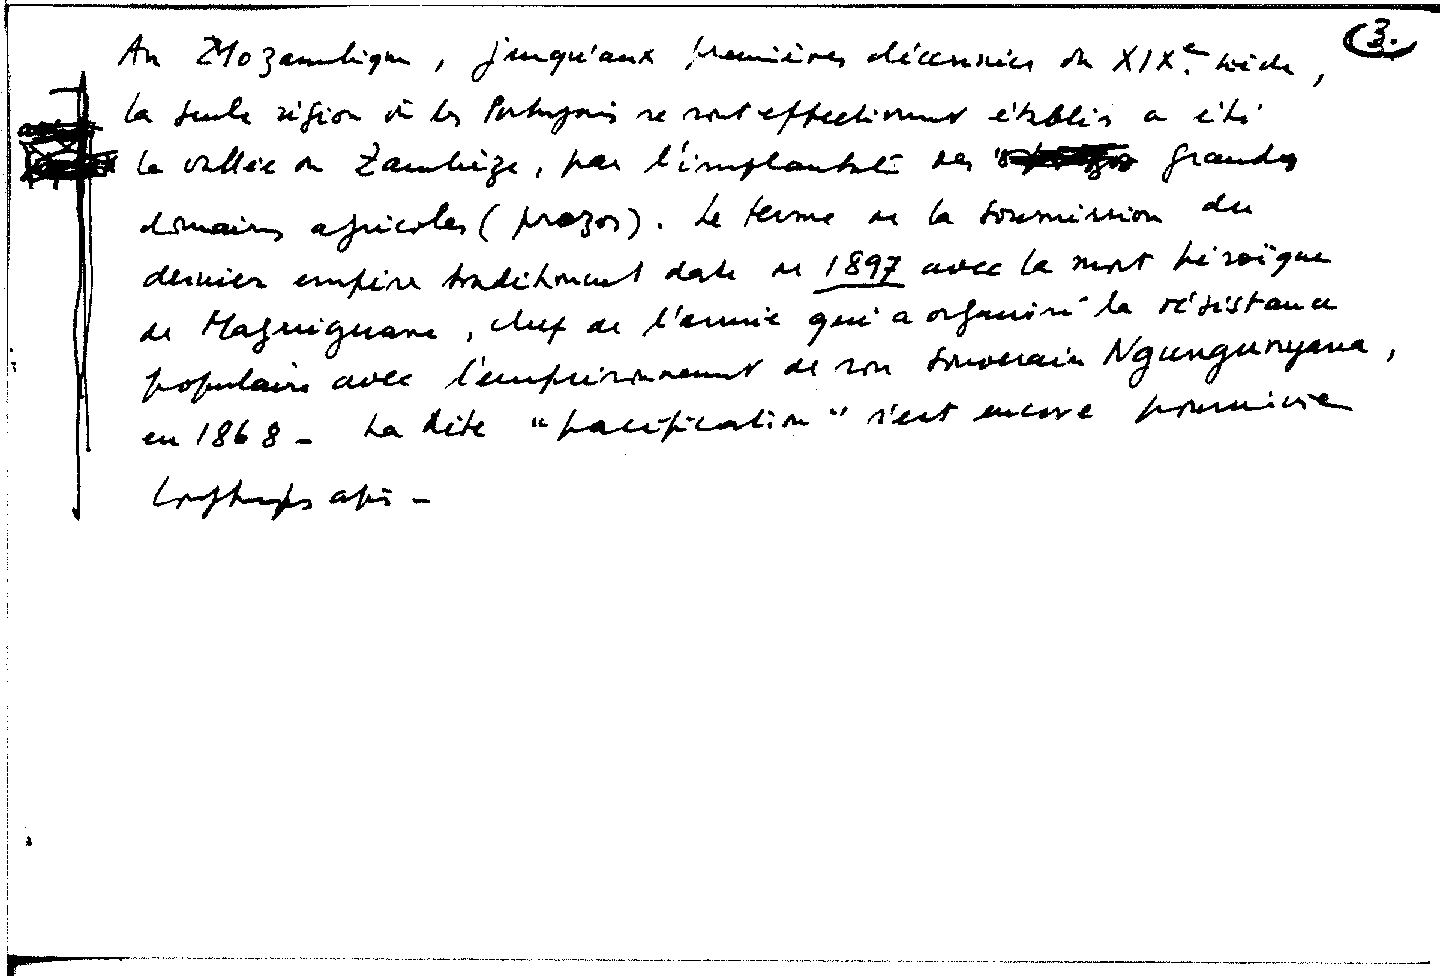 3.
Au Mozambique, jusqu'aux premières décennies du XIXe. siècle,
la seule région où les Portugais se sont effectivement établis a été
la vallée du Zambèze, par l'implantat. des grandes
domaines agricoles (prazos). Le terme de la soumission du
dernier empire traditionnel date de 1897 avec la mort héroïque
de Maguiguane, chef de l'armée qui a organisé la résistance
populaire avec l'emprisonnement de son souverain Ngungunyana,
en 1868 - La dite "pacification" s'est encore poursuivie
longtemps après -